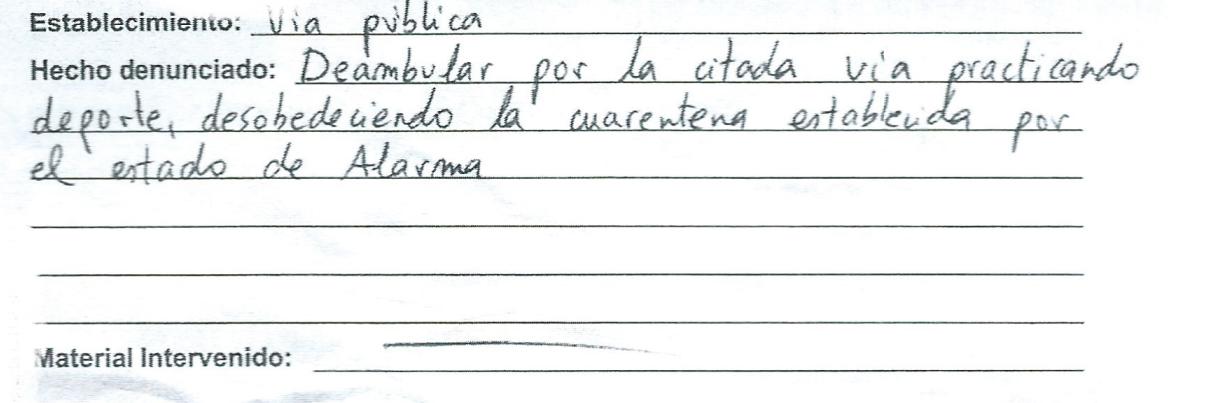 Establecimiento: Via pública
Hecho denunciado: Deambular por la citada vía practicando
deporte, desobedeciendo la cuarentena establecida por
el estado de Alarma
Material Intervenido: